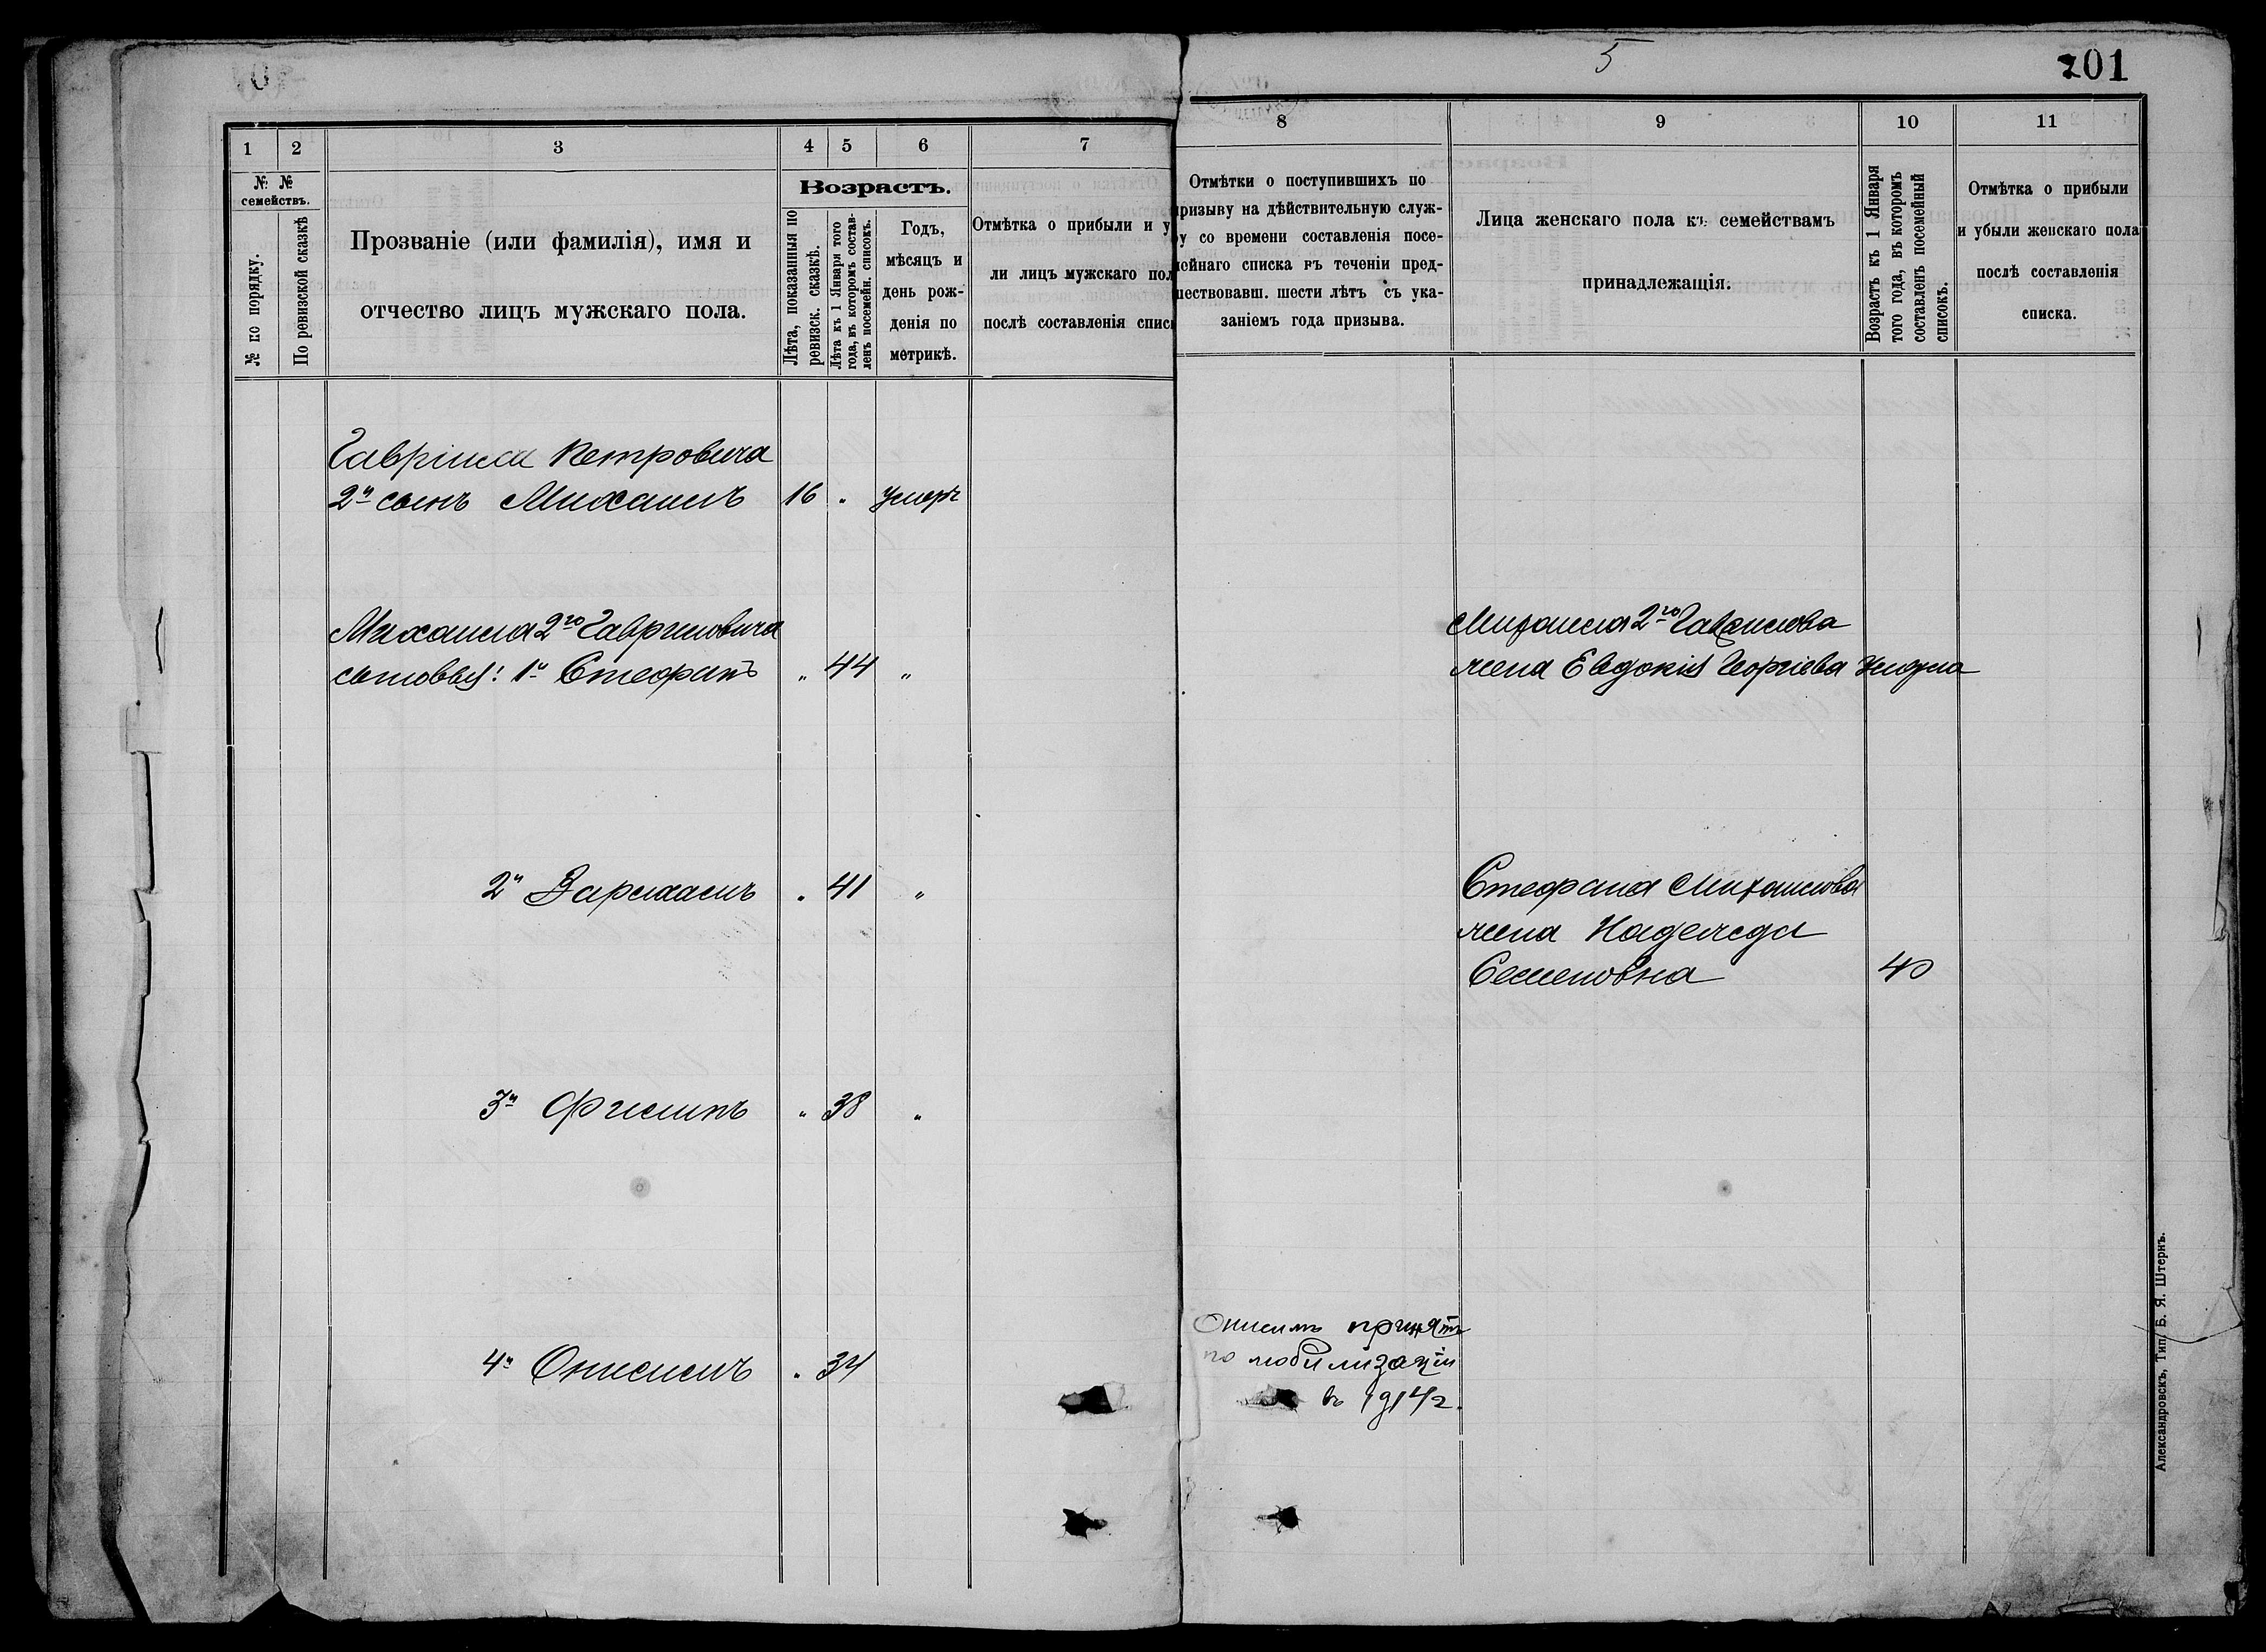 5
201
1
2
3
4
5
6
7
№ №
семействъ.
№ по порядку.
По ревизской сказкѣ
Прозваніе (или фамилія), имя и
отчество лицъ мужскаго пола.
Возрастъ.
Лѣта, показанныя по
ревизск. сказкѣ.
Лѣта къ 1 Января того
года, въ которомъ состав-
ленъ посемейн. списокъ.
Годъ,
мѣсяцъ и
день рож-
денія по
метрикѣ.
Отмѣтка о прибыли и у
ли лицъ мужскаго пол
послѣ составленія спис
Гавріила Петровича
2й сынъ Михаилъ 16 " умеръ
Михаила 2го Гавриловича
сыновья: 1й Стефанъ " 44 "
2й Варлаамъ " 41 "
3й Филипъ " 38 "
4й Онисимъ " 34
8
9
10
11
Отмѣтки о поступившихъ по
призыву на дѣйствительную служ-
бу со времени составленія посе-
мейнаго списка въ теченіи пред-
шествовавш. шести лѣтъ съ ука-
заніемъ года призыва.
Лица женскаго пола къ семействамъ
принадлежащія.
Возрастъ къ 1 Января
того года, въ которомъ
составленъ посемейный
списокъ.
Отмѣтка о прибыли
и убыли женскаго пола
послѣ составленія
списка.
Михаила 2го Гавриилова
жена Евдокія Георгіева Умерла
Стефана Михаилова
жена Надежда
Семеновна 40
Онисимъ принятъ
по мобилизаціи
въ 1914 г.
Александровскъ, Тип. Б. Я. Штернъ.